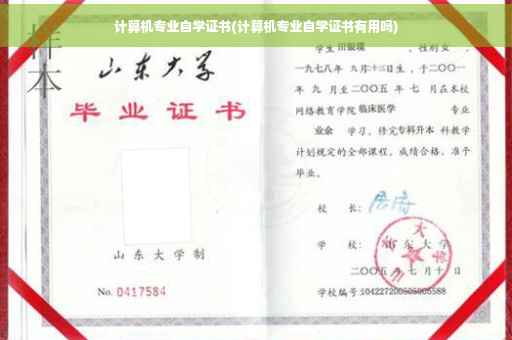 计算机专业自学证书(计算机专业自学证书有用吗)
样本
山东大学
毕业证书
山东大学制
No. 0417584
学生 田银瑞 ，性别女，
一九七八年 九月十三日生，于二〇〇一
年 九 月至二〇〇五 年 七 月在本校
网络教育学院 临床医学 专业
业余 学习，修完专科升本 科教学
计划规定的全部课程，成绩合格，准予
毕业。
校 长：
学 校：山东大学
二〇〇五 年 七 月 十 日
学校编号:104227200505005588